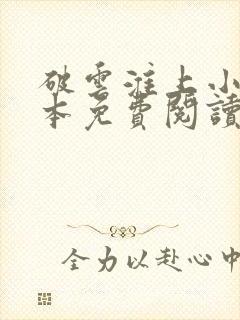 破雲淮上小
本免費閱讀
全力以赴心中